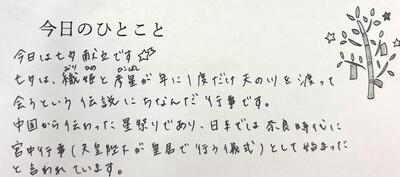 今日のひとこと
今日は七夕献立です☆
七夕は、織姫と彦星が年に1度だけ天の川を渡って
会うという伝説にちなんだ行事です。
中国から伝わった星祭りであり、日本では奈良時代に
宮中行事(天皇陛下が皇居で行う儀式)として始まった
と言われています。